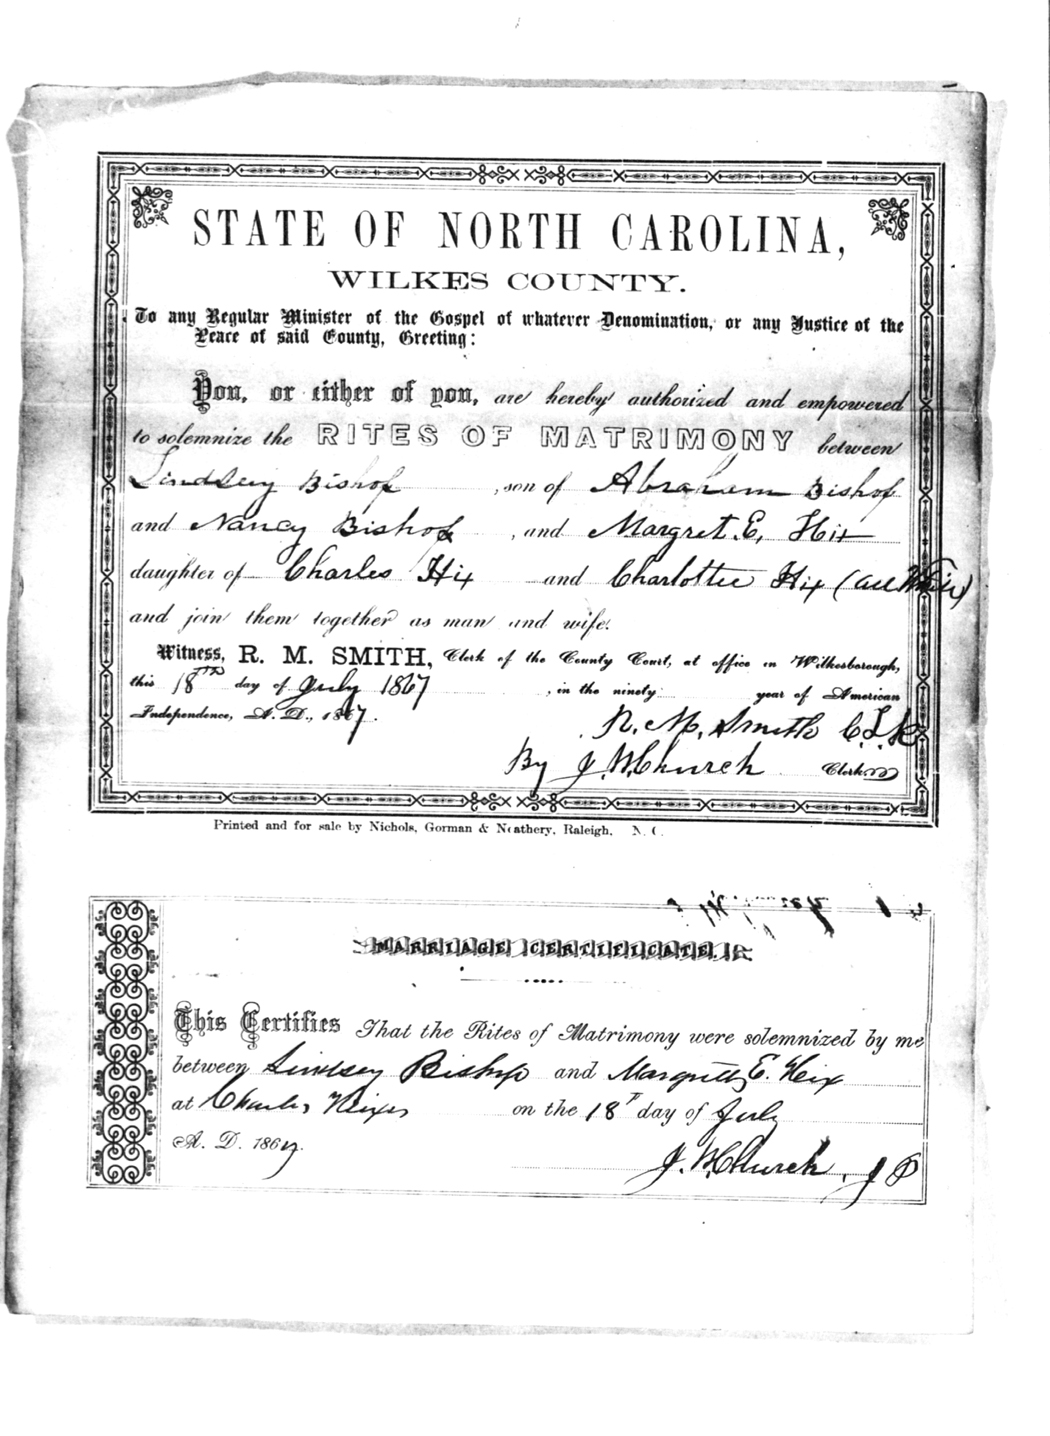 STATE OF NORTH CAROLINA,
WILKES COUNTY.
To any Regular Minister of the Gospel of whatever Denomination, or any Justice of the
Peace of said County, Greeting:
You, or either of you, are hereby authorized and empowered
to solemnize the RITES OF MATRIMONY between
Lindsey Bishop , son of Abraham Bishop
and Nancy Bishop , and Margret. E, Hix
daughter of Charles Hix and Charlottie Hix (all White)
and join them together as man and wife.
Witness, R. M. SMITH, Clerk of the County Court, at office in Wilkesborough,
this 18TH day of July 1867 , in the ninety year of American
Independence, A. D., 1867.
R. M. Smith C.L.K
By J. W. Church Clerk.
Printed and for sale by Nichols, Gorman & Neathery, Raleigh, N. C.
MARRIAGE CERTIFICATE.
This Certifies That the Rites of Matrimony were solemnized by me
between Lindsey Bishop and Margrett E. Hix
at Charles Hixes on the 18T day of July
A. D. 1867.
J. W. Church, J P